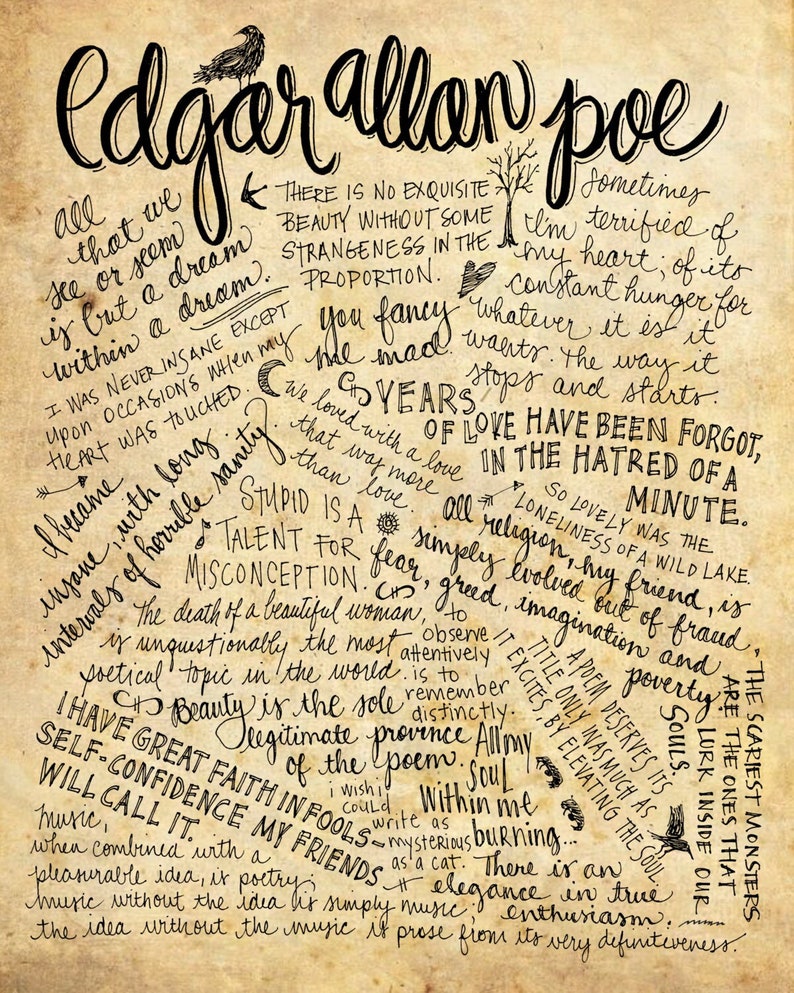 edgar allan poe
all
that we
see or seem
is but a dream
within a dream.
THERE IS NO EXQUISITE
BEAUTY WITHOUT SOME
STRANGENESS IN THE
PROPORTION.
Sometimes
I'm terrified of
my heart; of its
constant hunger for
whatever it is it
wants. The way it
stops and starts.
you fancy
me mad.
I WAS NEVER INSANE EXCEPT
UPON OCCASIONS WHEN my
HEART WAS TOUCHED.
We loved with a love
that was more
than love.
YEARS
OF LOVE HAVE BEEN FORGOT,
IN THE HATRED OF A
MINUTE.
I became
insane, with long
intervals of horrible sanity.
STUPID IS A
TALENT FOR
MISCONCEPTION.
SO LOVELY WAS THE
LONELINESS OF A WILD LAKE.
all religion, my friend, is
simply evolved out of fraud
fear, greed, imagination and
poverty.
The death of a beautiful woman,
is unquestionably the most
poetical topic in the world.
to
observe
attentively
is to
remember
distinctly.
A POEM DESERVES ITS
TITLE ONLY INASMUCH AS
IT EXCITES, BY ELEVATING THE SOUL
THE SCARIEST MONSTERS
ARE THE ONES THAT
LURK INSIDE OUR
SOULS.
Beauty is the sole
legitimate province
of the poem.
I HAVE GREAT FAITH IN FOOLS-
SELF-CONFIDENCE MY FRIENDS
WILL CALL IT.
All my
soul
within me
burning...
i wish i
could
write as
mysterious
as a cat.
There is an
elegance in true
enthusiasm.
music,
when combined with a
pleasurable idea, is poetry;
music without the idea is simply music;
the idea without the music is prose from its very definitiveness.